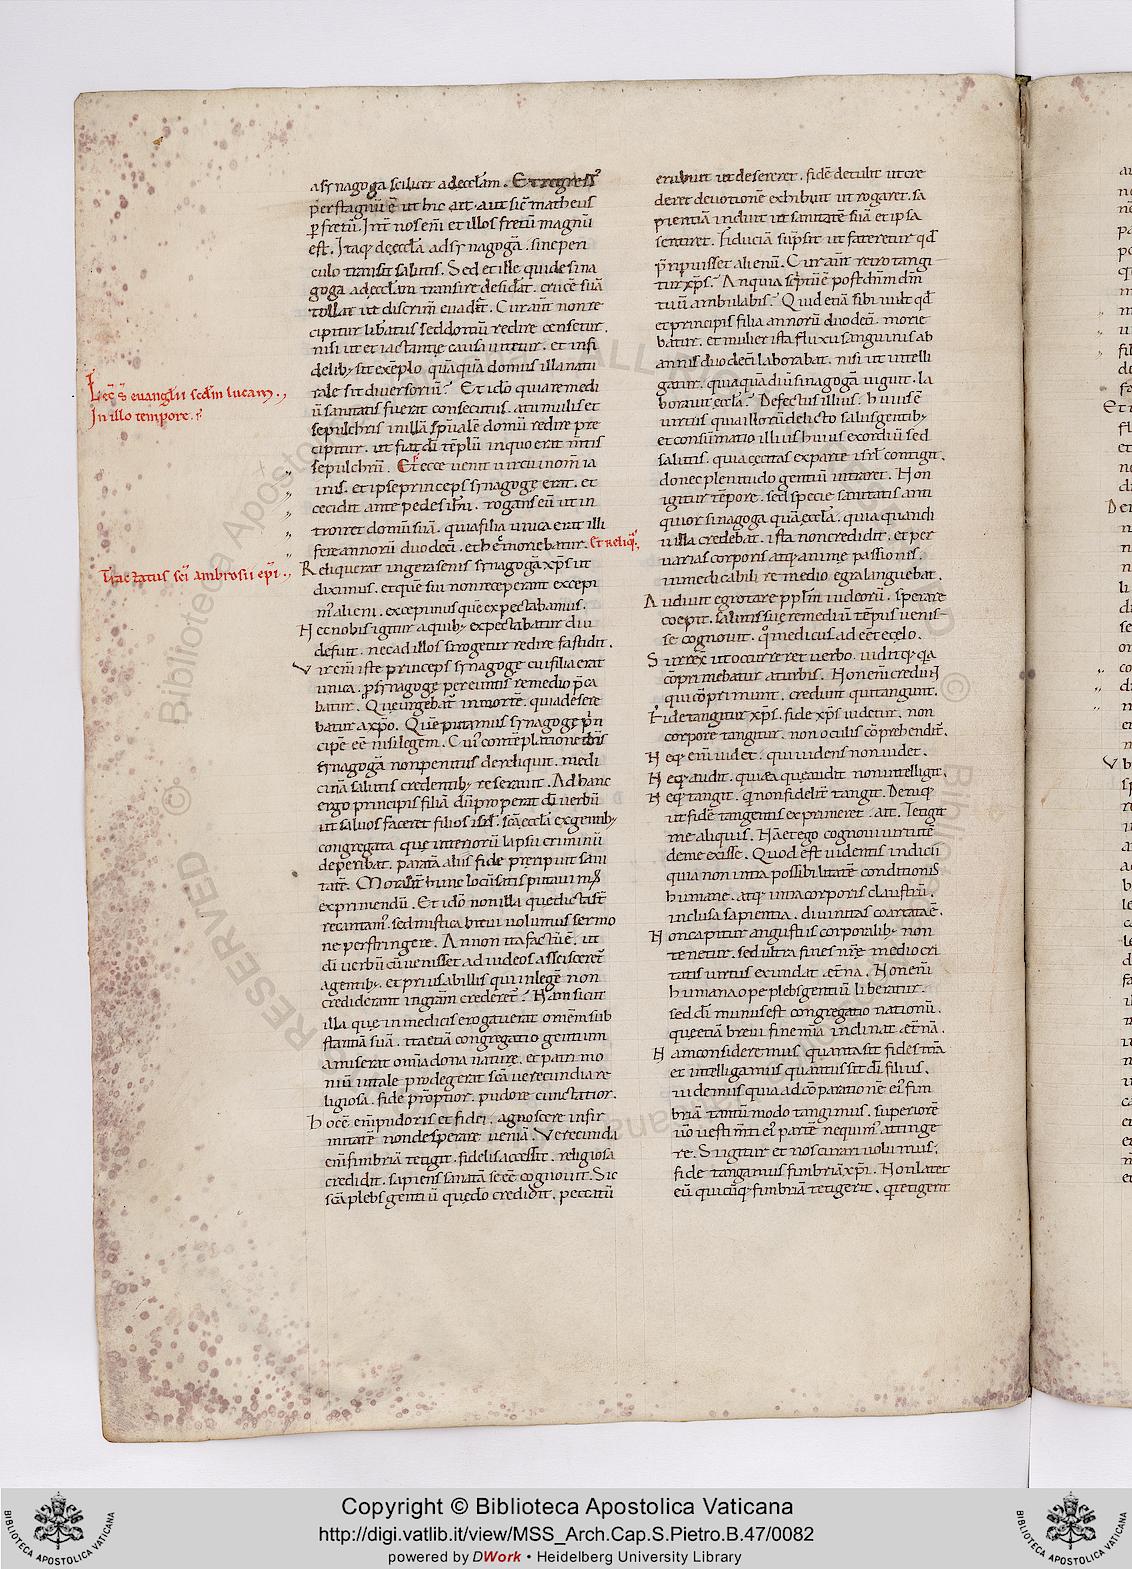 a synagoga scilicet ad eccl̄am. Et regress'
per stagnū ē ut hic ait. aut sic̄ matheus
ꝑ fretū. Int̄ nos eni et illos fretū magnū
est. Itaq; de eccl̄a ad synagogā. sine peri
culo transit salutis. Sed et ille qui de sina
goga ad eccl̄am transire desiderat. crucē suā
tollat ut discrim̄ euadat. Cur aūt non re
cipitur liberatus sed domū redire censetur.
nisi ut et iactantię causa uitetur. et infi
delib; sit exēplo quāquā domus illa natu
rale sit diuersoriū? Et idō quia remedi
ū sanitatis fuerat consecutus. a tumulis et
sepulchris in illā sp̄ualē domū redire pre
cipitur. ut fiat dī tēplū in quo erat m̄tis
sepulchrū. Et ecce uenit uir cui nom̄ ia
irus. et ipse princeps synagogę erat. et
cecidit ante pedes ih̄u. rogans eū ut in
troiret domū suā. quia filia unica erat illi
fere annorū duodeci. et hec moriebatur. Et reliq̄.
Lec̄ s̄ euanglii scdm lucam.
In illo tempore.
Tractatus sc̄i ambrosii ep̄i.
Reliquerat in gerasenis synagogā xp̄s ut
diximus. et quē sui non receperant excepi
m' alieni. excepimus quē expectabamus.
Nec nobis igitur a quib; expectabatur diu
defuit. nec ad illos si rogetur redire fastidit.
Vir eni iste princeps synagogę cui filia erat
unica. ꝓ synagogę pereuntis remedio p̄ca
batur. Que urgebat' in mortē. quia desere
batur a xp̄o. Quē putamus synagogę p̄n
cipē eē nisi legem. Cui' contēplatione dn̄s
synagogā non penitus dereliquit. medi
cinā salutis credentib; reserauit. Ad hanc
ergo principis filiā dū properat dī uerbū
ut saluos faceret filios isrl. sc̄a eccl̄a ex gentib;
congregata quę inferiorū lapsu criminū
deperibat. paratā aliis fide preripuit sani
tatē. Moralit̄ hunc locū satis putaui
exprimendū. Et idō non illa que dicta sūt
recantam'. sed mistica breui uolumus sermo
ne perstringere. Annon ita factū ē. ut
dī uerbū cū uenisset ad iudeos a
gentib;. et prius ab illis qui in lege non
crediderant in gr̄am crederet? Nam sicut
illa quę in medicis erogauerat omem sub
stantiā suā. ita etiā congregatio gentium
amiserat om̄ia dona naturę. et patrimo
niū uitale prodegerat sc̄a uerecundia re
ligiosa. fide p̄mptior. pudore cunctatior.
Hoc ē. eni pudoris et fidei. agnoscere infir
mitatē non desperare ueniā. Verecunda
eni fimbriā tetigit. fidelis accessit. religiosa
credidit. sapiens sanatā se eē cognouit. Sic
sc̄a plebs gentiū quę dō credidit. peccatū
erubuit ut desereret. fidē detulit ut cre
deret deuotionē exhibuit ut rogaret. sa
pientiā induit ut sanitatē suā et ipsa
sentiret. fiduciā sūpsit ut fateretur qd
p̄ripuisset alienū. Cur aūt retro tangi
tur xp̄s? An quia sc̄ptū ē post dn̄m dm̄
tuū ambulabis? Quid etiā sibi uult qd
et principis filia annorū duodeci. morie
batur. et mulier ista fluxu sanguinis ab
annis duodeci laborabat. nisi ut intelli
gatur. quia quādiū sinagogā uiguit. la
borauit eccl̄a? Defectus illius. huius ē
uirtus quia illorū delicto salus gentib;
et consūmatio illius huius exordiū sed
salutis. quia cęcitas ex parte isrl contigit.
donec plenitudo gentiū intraret. Non
igitur tēpore. sed specie sanitatis anti
quior sinagoga quā eccl̄a. quia quandi
u illa credebat. ista non credidit. et per
uarias corporis atq; animę passionis.
inmedicabili remedio egra languebat.
Audiuit egrotare pp̄lm iudeorū. sperare
coepit. salutis suę remediū tēpus uenis-
se cognouit. q̄ medicus adeēt ę cęlo.
Surrex̄ ut occurreret uerbo. uidit q; q̄a
cōprimebatur a turbis. Non eni credunt
qui cōprimunt. credunt qui tangunt.
Fide tangitur xp̄s. fide xp̄s uidetur. non
corpore tangitur. non oculis cōprehendit'.
Neq; eni uidet. qui uidens non uidet.
Neq; audit. qui ea quę audit non intelligit.
Neq; tangit. q̄ non fidelit̄ tangit. Deniq;
ut fidē tangentis exprimeret. ait. Tetigit
me aliquis. Nā et ego cognoui uirtutē
de me exisse. Quod est uidentis indicii
quia non intra possibilitatē conditionis
humanę. atq; intra corporis claustrū.
inclusa sapientia. diuinitas coartata ē.
Non capitur angustiis corporalib; non
tenetur. sed ultra fines nr̄ę mediocri
tatis uirtus exundat. et̄na. Non eni
humana ope plebs gentiū liberatur.
sed dī munus est congregatio nationū.
quę etiā breui fine mīa inclinat. et̄nā.
Nam consideremus quanta sit fides nr̄a
et intelligamus quantus sit dī filius.
uidemus quia ad cōparationē ei' fim
briā tantū modo tangimus. superiorē
uō uestim̄ti ei' partē nequim' attinge
re. Si igitur et nos curari uolumus.
fide tangamus fimbriā xp̄i. Non latet
eū quicūq; fimbriā tetigerit. q̄ tetigerit
Copyright © Biblioteca Apostolica Vaticana
http://digi.vatlib.it/view/MSS_Arch.Cap.S.Pietro.B.47/0082
powered by DWork • Heidelberg University Library
BIBLIOTECA APOSTOLICA VATICANA
BIBLIOTECA APOSTOLICA VATICANA